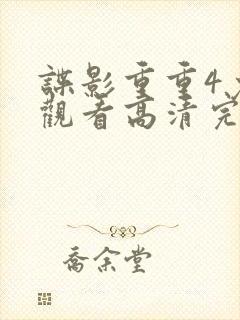 諜影重重4
觀看高清完
喬余堂